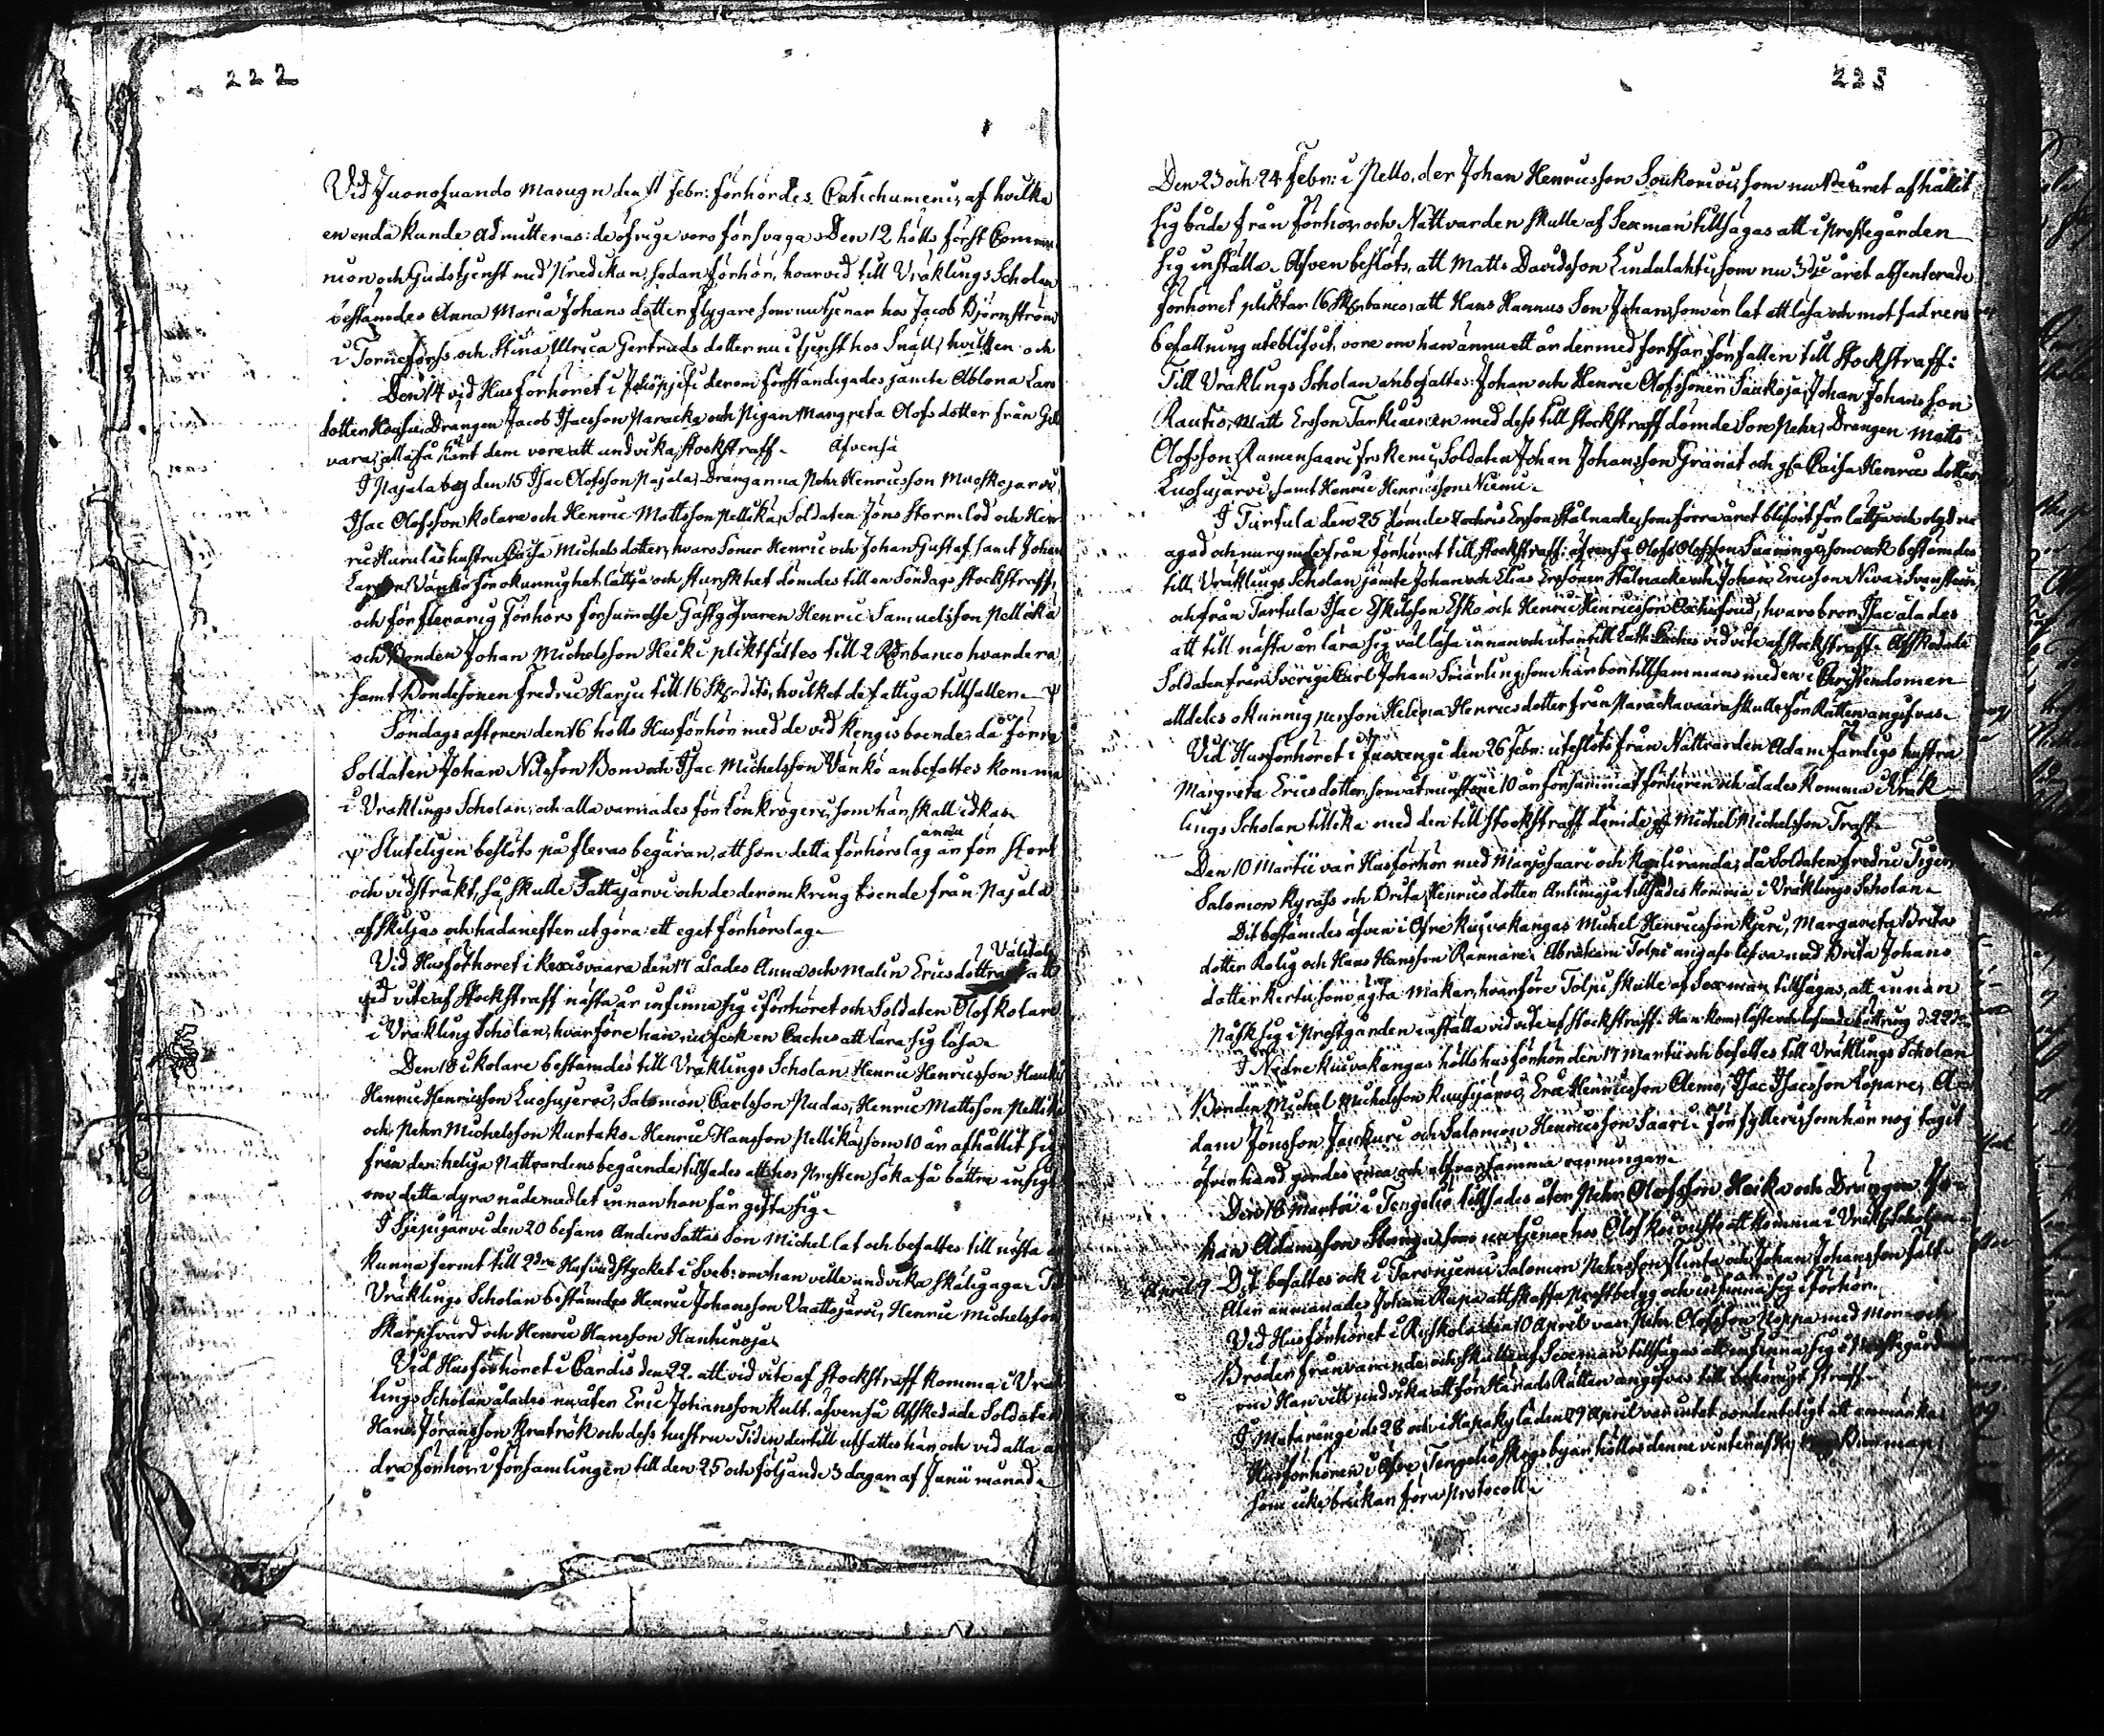 222
Vid Juonosuando Masugn den 11 Febr: förhördes Catechumeni, af hvilka
en enda kunde admitteras: de öfrige voro för svaga. Den 12 hölls först Commu
nion och Gudstjenst med Predikan, sedan förhör, hvarvid till Vräklings Scholan
bestämdes Anna Maria Johans dotter flygare som nu tjenar hos Jacob Björnström
i Torneforss och Stina Ulrica Gertruds dotter nu i tjenst hos Snäll, hvilken och
Den 14 vid Husförhöret i derom förständigades jämte Ablona Lars
dotter Drängen Jacob Isacsson Paracka och Pigan Margreta Olofs dotter från
vara, alla så kärt dem vore att undvika stockstraff. Äfvenså
I Pajala by den 15 Isac Olofsson Pajala, Drängarna Pehr Henricsson Muoskojarvi,
Isac Olofsson Kolare och Henric Mattsson Pellika, Soldaten Jöns Stormlod och Hen
ric Hurulas hustru Cajsa Michels dotter, hvars Söner Henric och Johan Gustaf samt Johan
Larsson Vänkö för okunnighet lättja och sturskhet dömdes till en Söndags stockstraff,
och för flerårig Förhörs försummelse Gästgifvaren Henric Samuelsson Pellika
och Bonden Johan Michelsson Heiki pliktfältes till 2 Rdr banco hvardera
samt Bondesonen Fredric Harju till 16 sk. dito, hvilket de fattiga tillfaller.
Söndags aftonen den 16 hölls Husförhör med de vid Kengis boende, då förre
Soldaten Johan Nilsson Bom och Isac Michelsson Vänkö anbefaltes komma
i Vräklings Scholan, och alla varnades för lönkrögeri, som här skall idkas.
Sluteligen beslöts på fleras begäran, att som detta förhörslag ännu är för stort
och vidsträkt, så skulle Sattajärvi och de deromkring boende från Pajala
afskiljas och hädanefter utgöra ett eget förhörslag.
Vid Husförhöret i Kexisvaara den 17 ålades Anna och Malin Erics döttrar Välitalo att
vid vite af Stockstraff nästa år infinna sig i förhöret och Soldaten Olof Kolare
i Vräkling Scholan, hvarföre han nu feck en Caches att lära sig läsa.
Den 18 i Kolare bestämdes till Vräklings Scholan Henric Henricsson
Henric Henricsson Luosujervi, Salomon Carlsson Rudas, Henric Mattsson Pellika
och Pehr Michelsson Kurtak. Henric Hansson Pellika, som 10 år afhållit sig
från den heliga Nattvardens begående tillsades att hos Presten söka få bättre insigt
om detta dyra nådemedlet innan han får gifta sig.
I Sjejujärvi den 20 befans Anders Sattas Son Michel lat och befaltes till nästa
kunna fermt till 2dra Hufvudstycket i Sveb: om han ville undvika skälig aga. Till
Vräklings Scholan bestämdes Henric Johansson Vaattojärvi, Henric Michelsson
Skarpsvärd och Henric Hansson
Vid Husförhöret i Pardis den 22. att vid vite af Stockstraff komma i Vräk
lings Scholan ålades nu åter Eric Johansson Kult. äfvenså Afskedade Soldaten
Hans Jöransson och dess hustru. Tiden dertill utsattes här och vid alla an
dra förhör i församlingen till den 25 och följande 3 dagar af Junii månad.
223
Den 23 och 24 Febr: i Pello, der Johan Henricsson som nu året afhållit
sig både från förhör och Nattvarden skulle af Sexman tillsägas att i Prestegården
sig inställa. Äfven beslöts, att Matts Davidsson Lindulahti, som nu 3dje året absenterade
förhöret pliktar 16 sk. banco, att Hans Hannus Son Johan, som är lat att läsa och mot fadrens
befallning uteblifvit, vore om han ännu ett år dermed fortfar, förfallen till Stockstraff:
Till Vräklings Scholan anbefaltes: Johan och Henric Olofssöner Saukoja, Johan Johansson
Rautio, Matts Ersson Tarkiainen med dess till Stockstraff dömde Son Pehr, Drängen Matts
Olofsson Rumensaari fr. Kemi, Soldaten Johan Johansson Granat och gla Cajsa Henrics dotter
Luosujärvi, samt Henric Henricsson Niemi.
I Turtula den 25 dömdes Zachris Ersson Stålnacke, som förra året blifvit för lättja och
agad och nu rymde från förhöret till stockstraff: äfvenså Olof Olofsson som ock bestämdes
till Vräklings Scholan jämte Johan och Elias Erssöner Stålnacke och Johan Ericsson Niva i Svanstein,
och från Turtula Isac Eskilsson Esko och Henric Henricsson hvars bror Isac ålades
att till nästa år lära sig väl läsa innan och utantill Luth: Caches vid vite af Stockstraff. Afskedade
Soldaten från Sverige Carl Johan som här bor tillsammans med en i Christendomen
aldeles okunnig person Helena Henrics dotter från Parackavaara skulle för Rätten angifvas.
Vid Husförhöret i Juoxengi den 26 Febr: uteslöts från Nattvarden Adam Färdigs hustru
Margreta Erics dotter, som åtminstone 10 år försummat förhören och ålades komma i Vräk
lings Scholan tillika med den till Stockstraff dömde Michel Michelsson Traft.
Den 10 Martii var Husförhör med Marjosaari och Kauliranda, då Soldaten Fredric Tiger,
Salomon och Brita Henrics dotter tillsades komma i Vräklings Scholan.
Dit bestämdes äfven i Öfre Kuivakangas Michel Henricsson Kjeri, Margareta Brita
dotter Rolig och Hans Hansson Rännäre. Abraham Tolpi angafs lefva med Brita Johans
dotter Kertu, som ägta Makar, hvarföre Tolpi skulle af Sexman tillsägas, att innan
Påsk sig i Prestgården inställa vid vite af Stockstraff. Han kom, läste och lofvade bättring d. 22
I Nedre Kuivakangas hölls husförhör den 17 Martii och befaltes till Vräklings Scholan
Bonden Michel Michelsson Eric Henricsson Isac Isacsson Löpare, A
dam Jönsson och Salomon Henricsson Saari. För fylleri, som här nog tagit
öfverhand gjordes och alfvarsamma varningar.
Den 18 Martii i Tengeliö tillsades åter Pehr Olofsson Heika och Drängen Jo
han Adamsson som nu tjenar hos Olof att komma i Vräkl. Scholan.
April 9 Dit befaltes ock i Salomon Pehrsson Flinta och Johan Johansson
Åter anmanades Johan Rupa att skaffa Prestbetyg och infinna sig i förhör.
Vid Husförhöret i den 10 April var Pehr Olofsson med Mor och
Bröder frånvarande och skulle af Sexman tillsägas att infinna sig i Prestegården
om Han vill undvika att för Härads Rätten angifvas till behörigt straff.
I Matarengi d. 28 och i Hapakylä den 29 April var intet oordenteligt att anmärka.
Husförhören i Öfre Tengeliö Skogsbyar höllos denne vinter af
som icke brukar föra Protocoll.